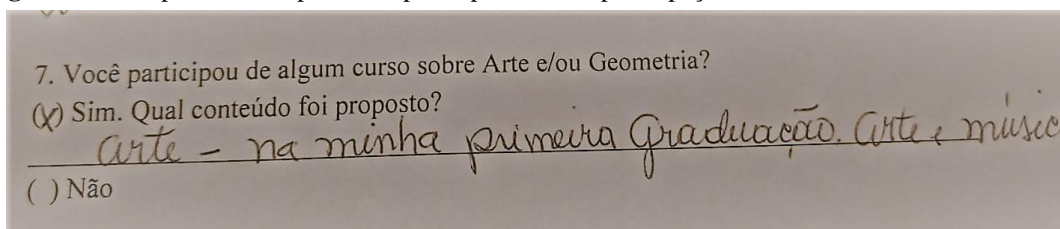 7. Você participou de algum curso sobre Arte e/ou Geometria?
(X) Sim. Qual conteúdo foi proposto?
arte - na minha primeira Graduação. Arte e músic
( ) Não